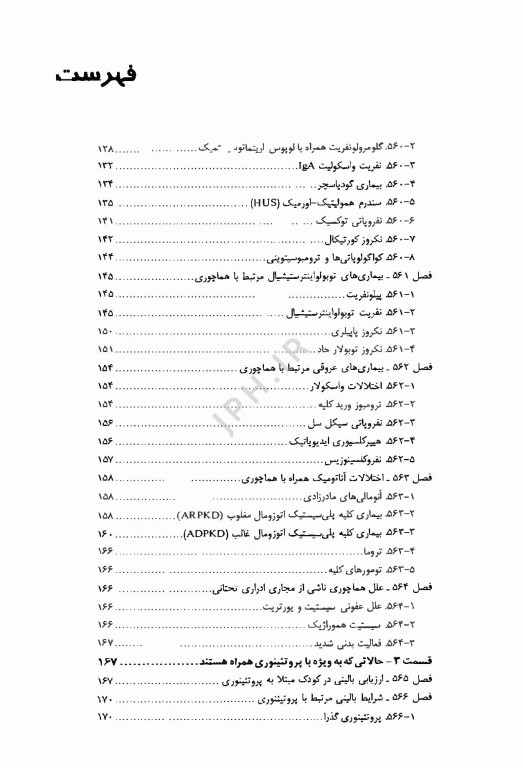 فهرست
۲-۵۶۰. گلومرولونفریت همراه با لوپوس اریتماتو ... ۱۲۸
۳-۵۶۰. نفریت واسکولیت IgA ... ۱۳۲
۴-۵۶۰. بیماری گودپاسچر ... ۱۳۴
۵-۵۶۰. سندرم همولیتیک-اورمیک (HUS) ... ۱۳۵
۶-۵۶۰. نفروپاتی توکسیک ... ۱۴۱
۷-۵۶۰. نکروز کورتیکال ... ۱۴۲
۸-۵۶۰. کواگولوپاتی‌ها و ترومبوسیتوپنی ... ۱۴۴
فصل ۵۶۱ ـ بیماری‌های توبولواینترستیشیال مرتبط با هماچوری ... ۱۴۵
۱-۵۶۱. پیلونفریت ... ۱۴۵
۲-۵۶۱. نفریت توبولواینترستیشیال ... ۱۴۵
۳-۵۶۱. نکروز پاپیلری ... ۱۵۰
۴-۵۶۱. نکروز توبولار حاد ... ۱۵۱
فصل ۵۶۲ ـ بیماری‌های عروقی مرتبط با هماچوری ... ۱۵۴
۱-۵۶۲. اختلالات واسکولار ... ۱۵۴
۲-۵۶۲. ترومبوز ورید کلیه ... ۱۵۴
۳-۵۶۲. نفروپاتی سیکل سل ... ۱۵۶
۴-۵۶۲. هیپرکلسیوری ایدیوپاتیک ... ۱۵۶
۵-۵۶۲. نفروکلسینوزیس ... ۱۵۷
فصل ۵۶۳ ـ اختلالات آناتومیک همراه با هماچوری ... ۱۵۸
۱-۵۶۳. آنومالی‌های مادرزادی ... ۱۵۸
۲-۵۶۳. بیماری کلیه پلی‌سیستیک اتوزومال مغلوب (ARPKD) ... ۱۵۸
۳-۵۶۳. بیماری کلیه پلی‌سیستیک اتوزومال غالب (ADPKD) ... ۱۶۰
۴-۵۶۳. تروما ... ۱۶۶
۵-۵۶۳. تومورهای کلیه ... ۱۶۶
فصل ۵۶۴ ـ علل هماچوری ناشی از مجاری ادراری تحتانی ... ۱۶۶
۱-۵۶۴. علل عفونی سیستیت و یورتریت ... ۱۶۶
۲-۵۶۴. سیستیت هموراژیک ... ۱۶۶
۳-۵۶۴. فعالیت بدنی شدید ... ۱۶۷
قسمت ۳ - حالاتی که به ویژه با پروتئینوری همراه هستند ... ۱۶۷
فصل ۵۶۵ ـ ارزیابی بالینی در کودک مبتلا به پروتئینوری ... ۱۶۷
فصل ۵۶۶ ـ شرایط بالینی مرتبط با پروتئینوری ... ۱۷۰
۱-۵۶۶. پروتئینوری گذرا ... ۱۷۰
JPH.IR